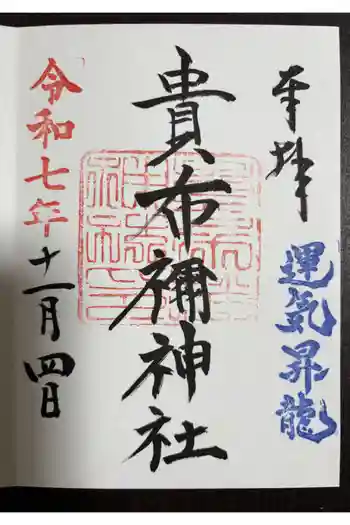 奉拝
運気昇龍
貴布禰神社
令和七年
十一月四日